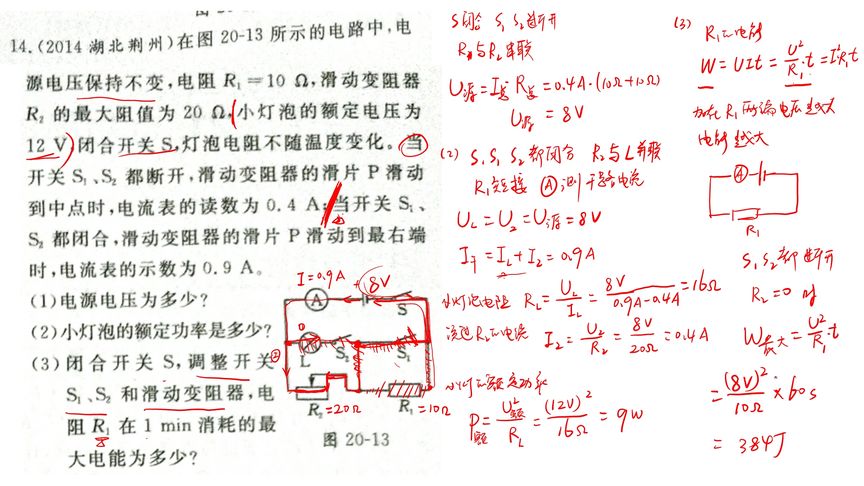 14.(2014 湖北荆州)在图 20-13 所示的电路中,电
源电压保持不变,电阻 R₁=10 Ω,滑动变阻器
R₂ 的最大阻值为 20 Ω,小灯泡的额定电压为
12 V,闭合开关 S,灯泡电阻不随温度变化。当
开关 S₁、S₂ 都断开,滑动变阻器的滑片 P 滑动
到中点时,电流表的读数为 0.4 A;当开关 S₁、
S₂ 都闭合,滑动变阻器的滑片 P 滑动到最右端
时,电流表的示数为 0.9 A。
(1)电源电压为多少?
(2)小灯泡的额定功率是多少?
(3)闭合开关 S,调整开关
S₁、S₂ 和滑动变阻器,电
阻 R₁ 在 1 min 消耗的最
大电能为多少?
I=0.9A
8V
A
S
L
S₂
S₁
R₂=20Ω
R₁=10Ω
图 20-13
S闭合 S₁ S₂断开
R₂与R₁串联
U源=I总R总=0.4A·(10Ω+10Ω)
U源=8V
(2) S、S₁ S₂都闭合 R₂与L并联
R₁短接 Ⓐ测干路电流
U_L=U₂=U源=8V
I干=I_L+I₂=0.9A
小灯泡电阻 R_L=U_L/I_L=8V/(0.9A-0.4A)=16Ω
流过R₂的电流 I₂=U₂/R₂=8V/20Ω=0.4A
小灯的额定功率
P额=U额²/R_L=(12V)²/16Ω=9W
(3) R₁的电能
W=UIt=U²/R₁·t=I²R₁t
加在R₁两端电压越大
电能越大
A
R₁
S₁ S₂都断开
R₂=0 时
W最大=U²/R₁·t
=(8V)²/10Ω×60s
=384J